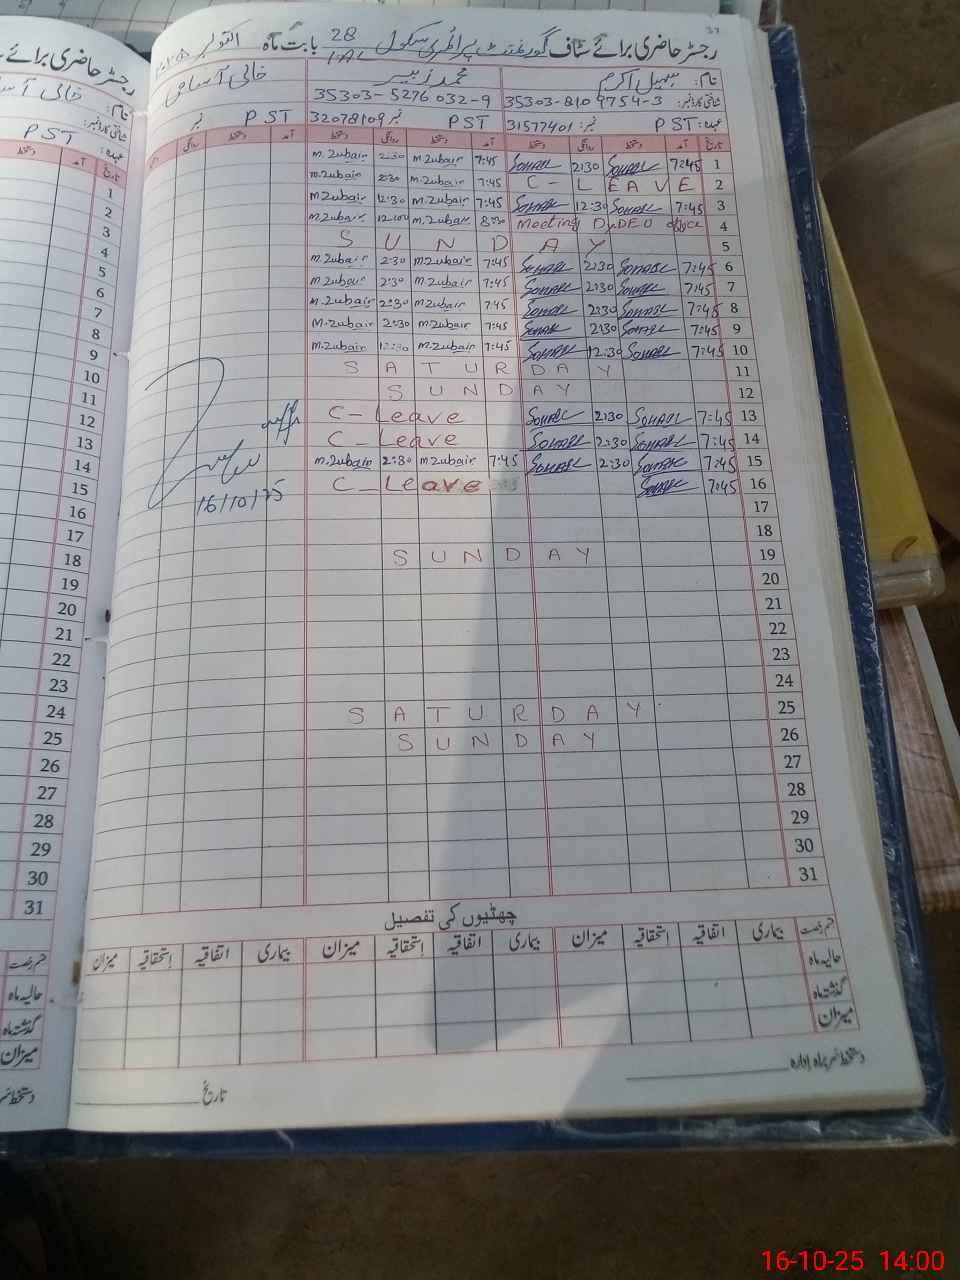 رجسٹر حاضری برائے سٹاف گورنمنٹ پرائمری سکول 28 بابت ماہ اکتوبر
نام: سہیل اکرم محمد زبیر خالی آسامی
شناختی کارڈ نمبر: 35303-8109754-3 35303-5276032-9
عہدہ: PST نمبر: 31577401 PST نمبر 32078109 PST نمبر
تاریخ آمد دستخط روانگی دستخط آمد دستخط روانگی دستخط آمد دستخط روانگی
1 7:45 SOHAEL 2:30 SOHAEL 7:45 M.Zubair 2:30 M.Zubair
2 C-LEAVE 7:45 M.Zubair 2:30 M.Zubair
3 7:45 SOHAEL 12:30 SOHAEL 7:45 M.Zubair 12:30 M.Zubair
4 Meeting DyDEO office 8:30 M.Zubair 12:00 M.Zubair
5 SUNDAY
6 7:45 SOHAEL 2:30 SOHAEL 7:45 M.Zubair 2:30 M.Zubair
7 7:45 SOHAEL 2:30 SOHAEL 7:45 M.Zubair 2:30 M.Zubair
8 7:45 SOHAEL 2:30 SOHAEL 7:45 M.Zubair 2:30 M.Zubair
9 7:45 SOHAEL 2:30 SOHAEL 7:45 M.Zubair 2:30 M.Zubair
10 7:45 SOHAEL 12:30 SOHAEL 7:45 M.Zubair 12:30 M.Zubair
11 SATURDAY
12 SUNDAY
13 7:45 SOHAEL 2:30 SOHAEL C-Leave
14 7:45 SOHAEL 2:30 SOHAEL C-Leave
15 7:45 SOHAEL 2:30 SOHAEL 7:45 M.Zubair 2:30 M.Zubair
16 7:45 SOHAEL C-Leave
16/10/25
17
18
19 SUNDAY
20
21
22
23
24
25 SATURDAY
26 SUNDAY
27
28
29
30
31
چھٹیوں کی تفصیل
قسم رخصت بیماری اتفاقیہ استحقاقیہ میزان بیماری اتفاقیہ استحقاقیہ میزان بیماری اتفاقیہ استحقاقیہ میزان
حالیہ ماہ
گذشتہ ماہ
میزان
دستخط سربراہ ادارہ
تاریخ
رجسٹر حاضری برائے
نام: خالی آسا
شناختی کارڈ نمبر:
عہدہ: PST
تاریخ آمد دستخط
1
2
3
4
5
6
7
8
9
10
11
12
13
14
15
16
17
18
19
20
21
22
23
24
25
26
27
28
29
30
31
قسم رخصت
حالیہ ماہ
گذشتہ ماہ
میزان
16-10-25 14:00